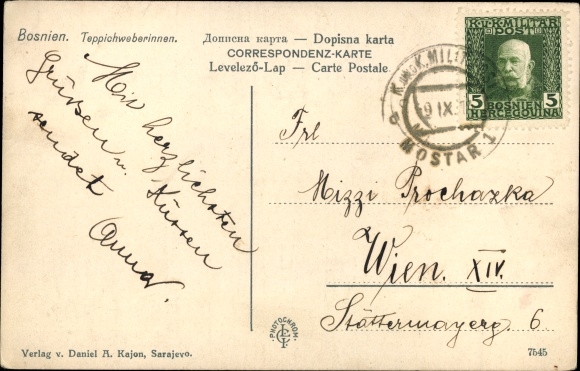 Bosnien. Teppichweberinnen.
Дописна карта — Dopisna karta
CORRESPONDENZ-KARTE
Levelező-Lap — Carte Postale
K.u.K. MILITAR
POST
5 5
BOSNIEN
HERCEGOVINA
K. und K. MILIT
9 IX
MOSTAR 1
Mit herzlichsten
Grüssen u. Küssen
sendet
Anna.
Frl
Mizzi Prochazka
Wien. XIV.
Stättermayerg. 6
PHOTOCHROM
Verlag v. Daniel A. Kajon, Sarajevo.
7545